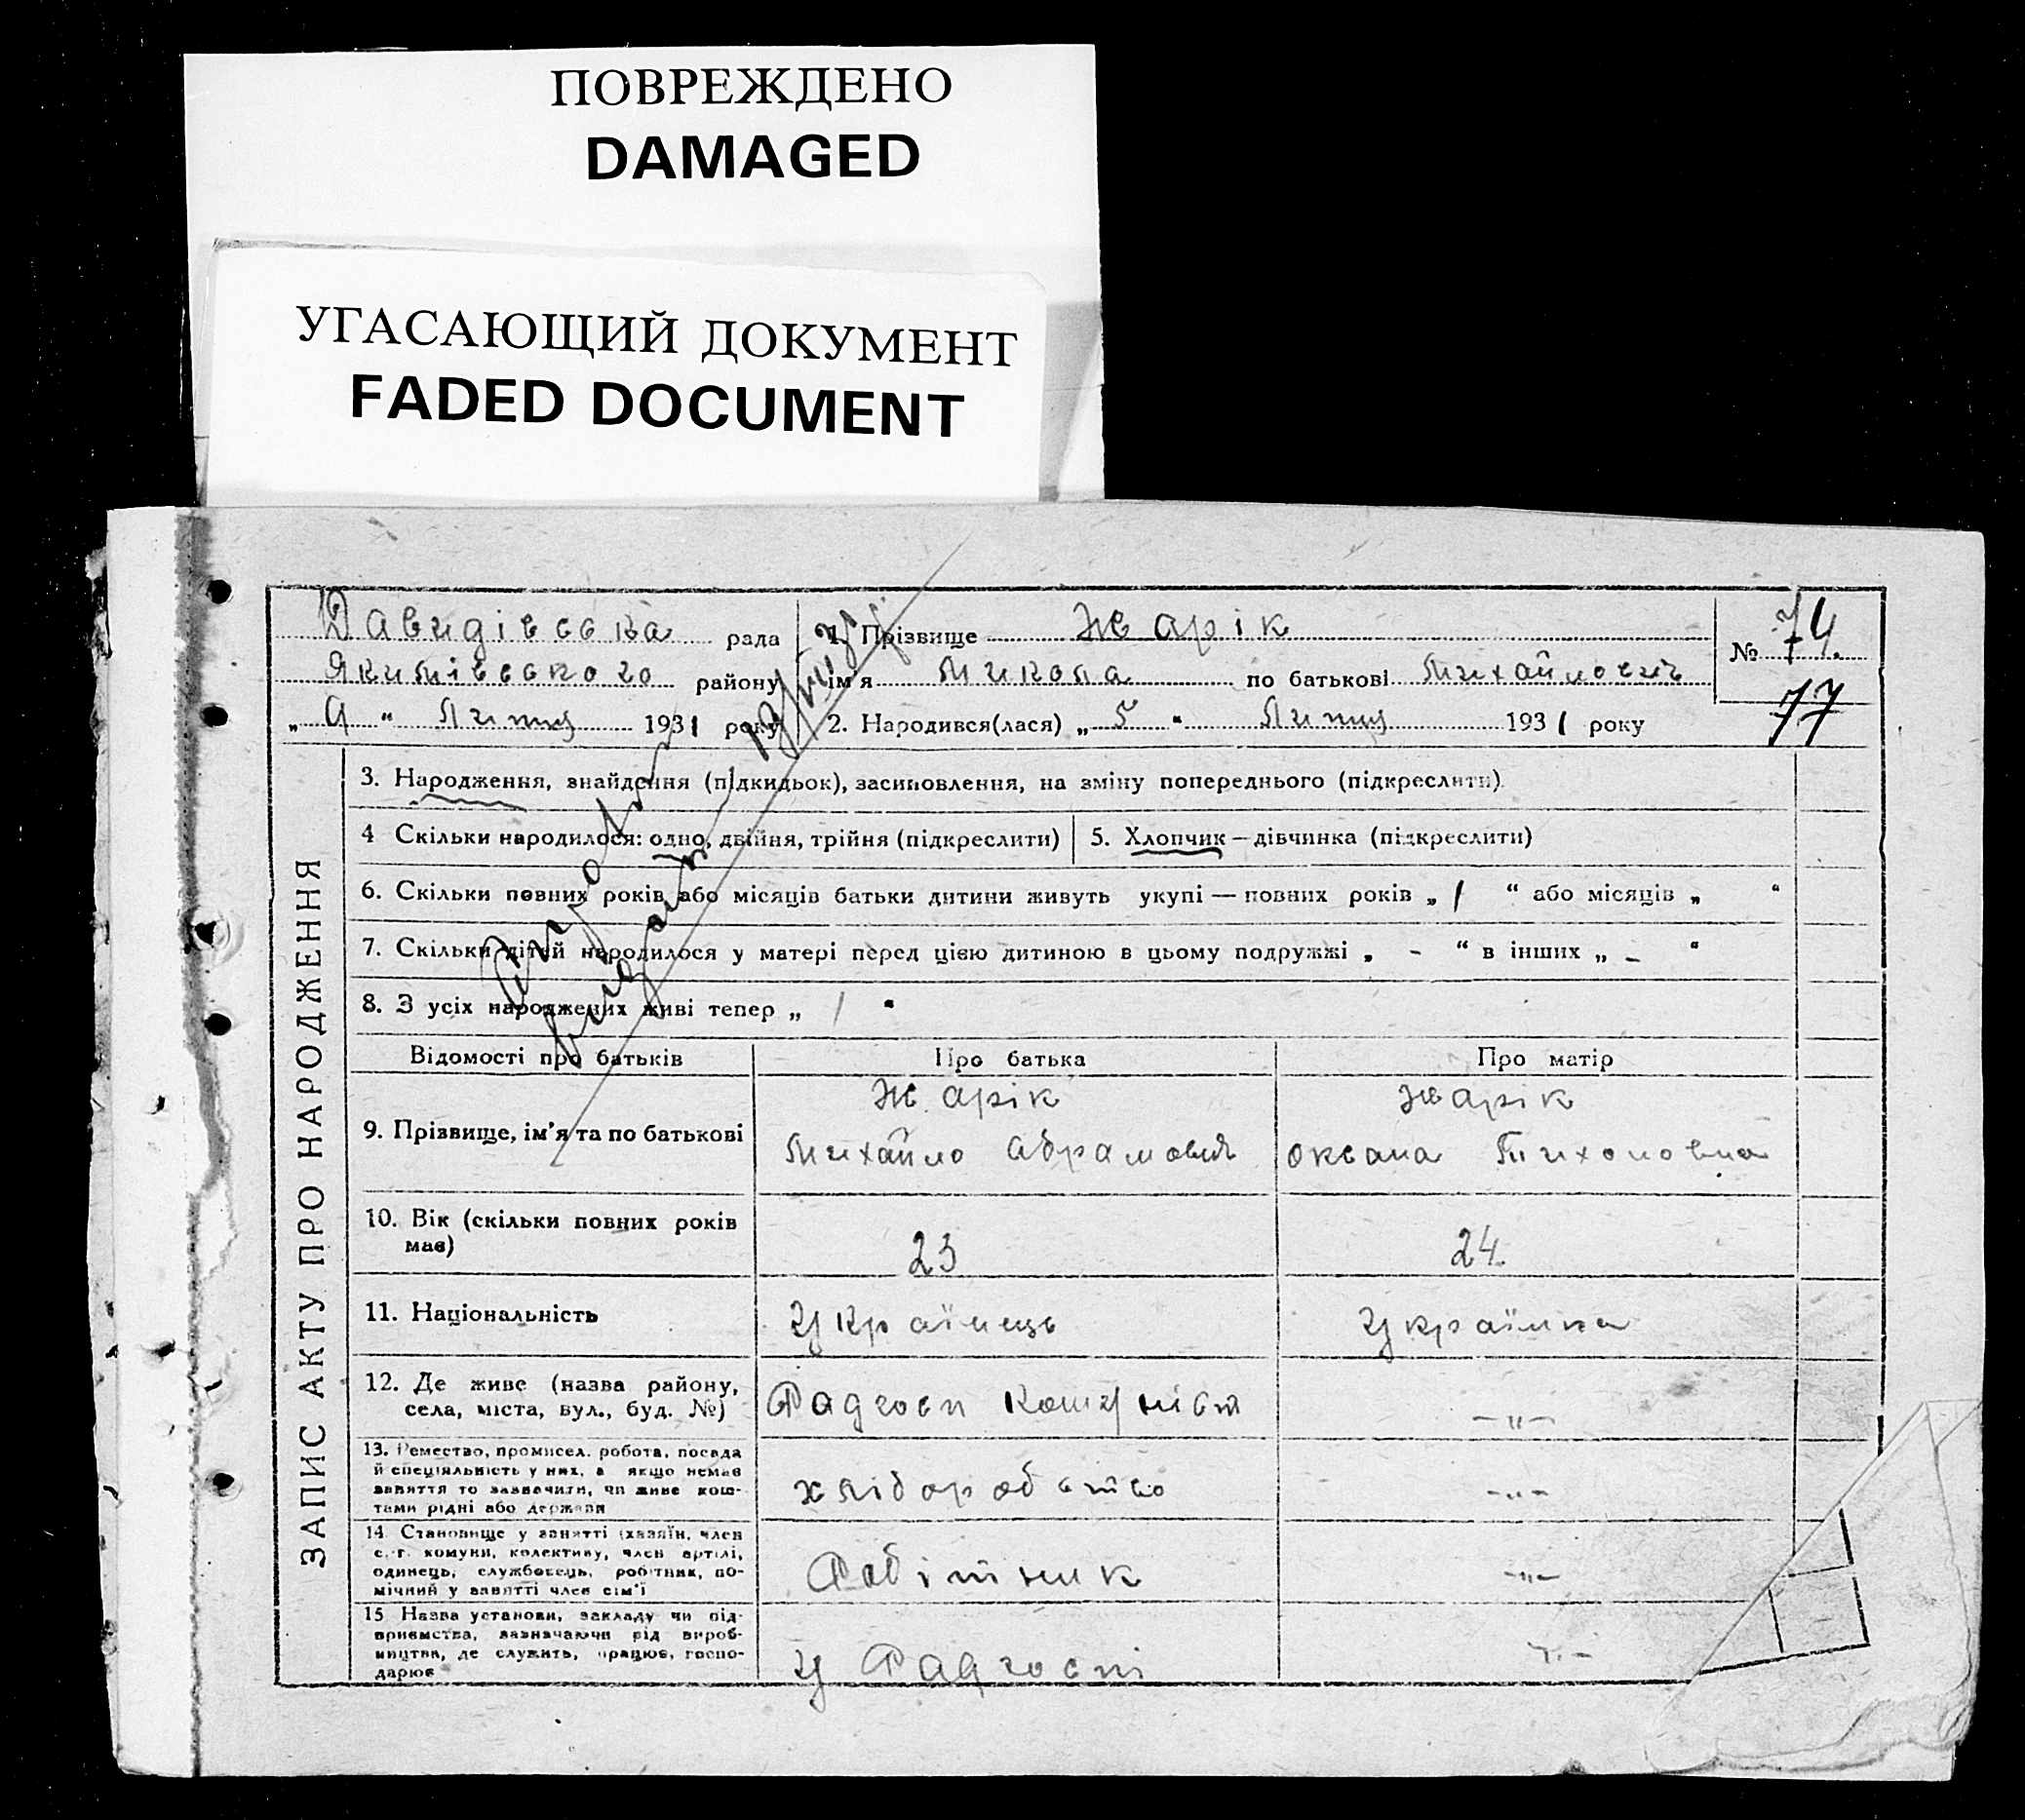 ПОВРЕЖДЕНО
DAMAGED
УГАСАЮЩИЙ ДОКУМЕНТ
FADED DOCUMENT
Давидівська рада
Якимівського району
„ 9 “ Липця 1931 року
1. Прізвище Жарік
ім'я Микола по батькові Михайлович
2. Народився(лася) „ 5 “ Липця 1931 року
№ 74.
77
ЗАПИС АКТУ ПРО НАРОДЖЕННЯ
3. Народження, знайдення (підкидьок), засиновлення, на зміну попереднього (підкреслити)
4 Скільки народилося: одно, двійня, трійня (підкреслити)
5. Хлопчик — дівчинка (підкреслити)
6. Скільки повних років або місяців батьки дитини живуть укупі — повних років „ 1 “ або місяців „ “
7. Скільки дітей народилося у матері перед цією дитиною в цьому подружжі „ - “ в інших „ - “
8. З усіх народжених живі тепер „ 1 “
Відомості про батьків Про батька Про матір
9. Прізвище, ім'я та по батькові
Жарік
Михайло Абрамович
Жарік
Оксана Тихоновна
10. Вік (скільки повних років має)
23
24
11. Національність
Українець
Українка
12. Де живе (назва району, села, міста, вул., буд. №)
Радгосп Комуніст
-„-
13. Ремество, промисел, робота, посада й спеціяльність у них, а якщо немає заняття то зазначити, чи живе коштами рідні або держави
хліборобство
-„-
14. Становище у занятті (хазяїн, член с.-г. комуни, колективу, член артілі, одинець, службовець, робітник, помічний у занятті член сім'ї
Робітник
-„-
15 Назва установи, закладу чи підприємства, зазначаючи рід виробництва, де служить, працює, господарює
У Радгоспі
-„-